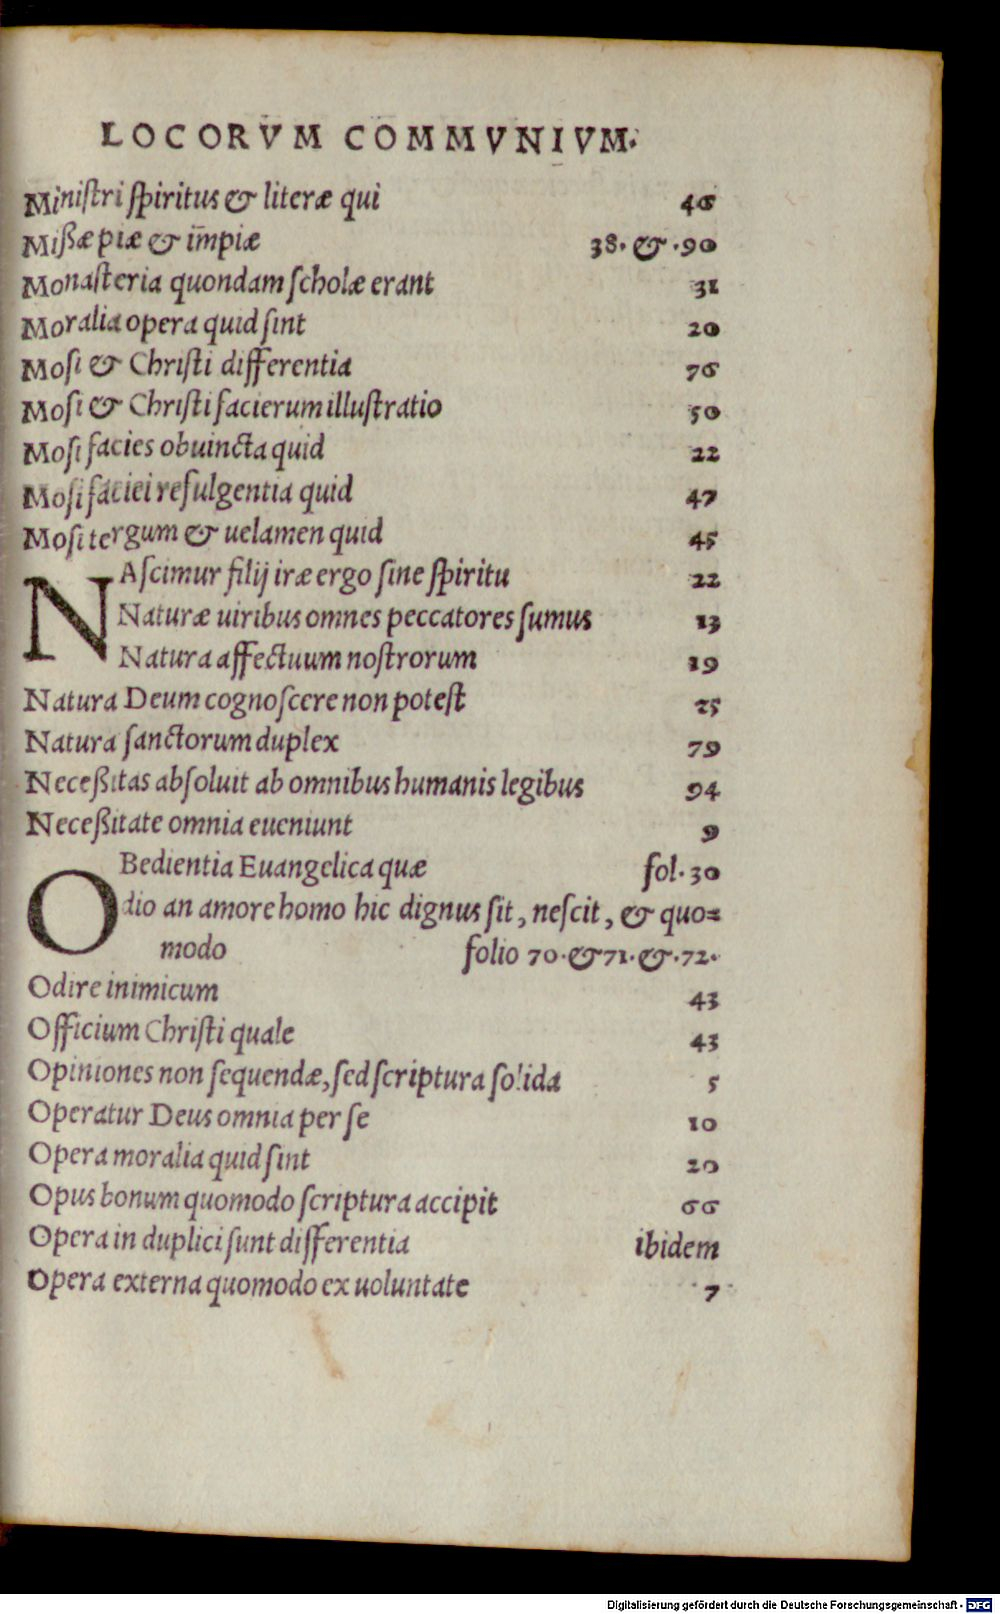 LOCORVM COMMVNIVM.
Miniſtri ſpiritus & literæ qui 46
Mißæ piæ & im̄piæ 38. & .90
Monaſteria quondam ſcholæ erant 31
Moralia opera quid ſint 20
Moſi & Chriſti differentia 76
Moſi & Chriſti facierum illuſtratio 50
Moſi facies obuincta quid 22
Moſi faciei refulgentia quid 47
Moſi tergum & uelamen quid 45
NAſcimur filij iræ ergo ſine ſpiritu 22
Naturæ uiribus omnes peccatores ſumus 13
Natura affectuum noſtrorum 19
Natura Deum cognoſcere non poteſt 25
Natura ſanctorum duplex 79
Neceßitas abſoluit ab omnibus humanis legibus 94
Neceßitate omnia eueniunt 9
OBedientia Euangelica quæ fol. 30
Odio an amore homo hic dignus ſit, neſcit, & quo=
modo folio 70. & 71. & .72.
Odire inimicum 43
Officium Chriſti quale 43
Opiniones non ſequendæ, ſed ſcriptura ſolida 5
Operatur Deus omnia per ſe 10
Opera moralia quid ſint 20
Opus bonum quomodo ſcriptura accipit 66
Opera in duplici ſunt differentia ibidem
Opera externa quomodo ex uoluntate 7
Digitalisierung gefördert durch die Deutsche Forschungsgemeinschaft - DFG